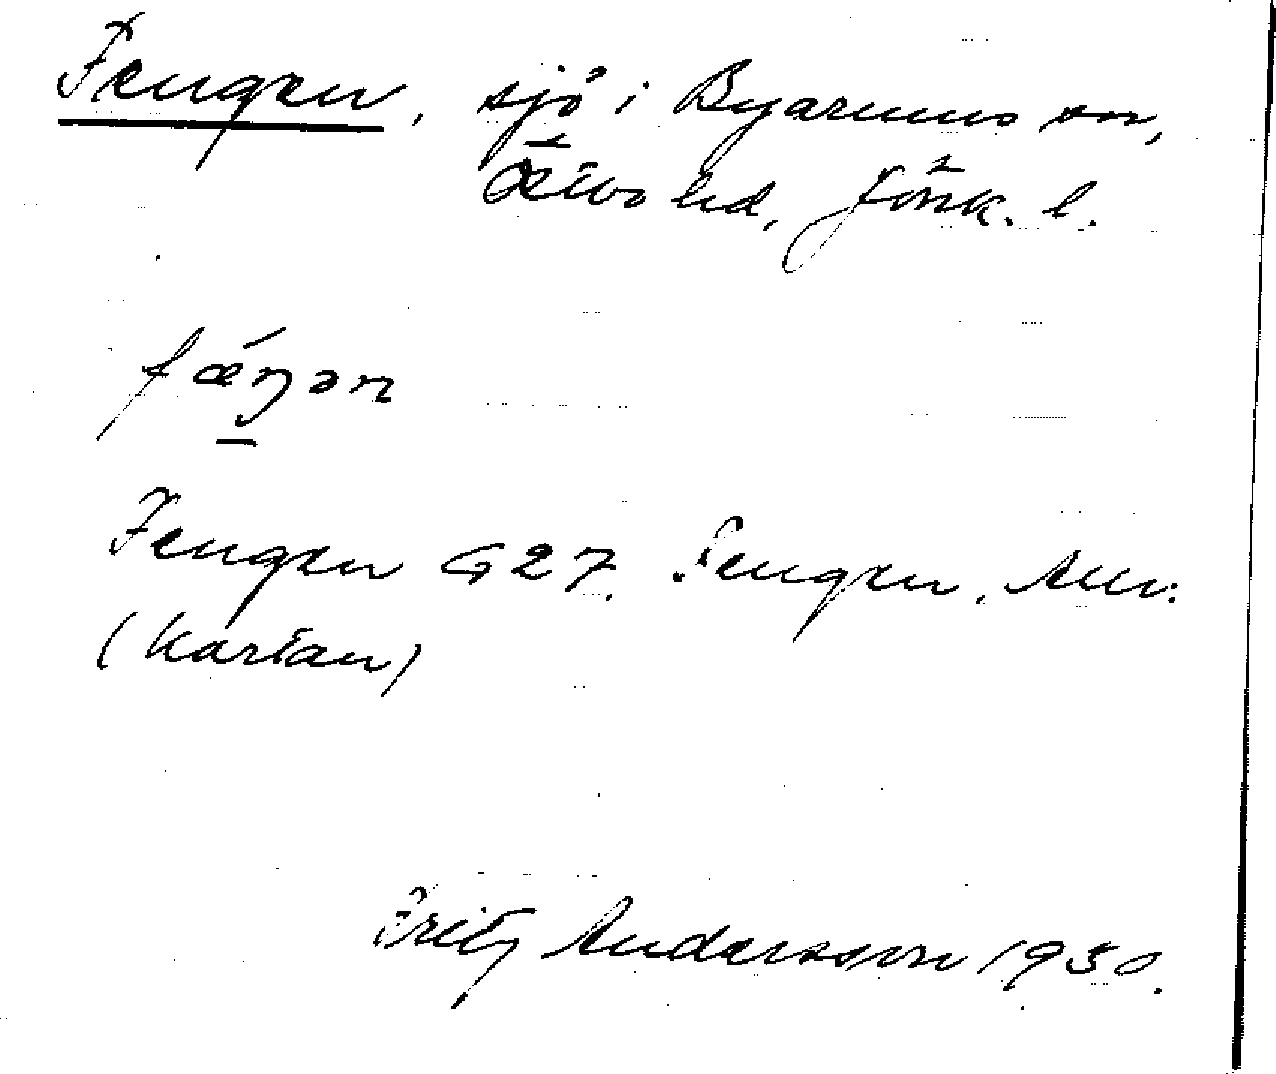 Fengen, sjö i Byarums sn,
Östbo hd, Jönk. l.
fǽŋən
Fengen G27. Fengen. Allv.
(Kartan)
Fritz Andersson 1930.